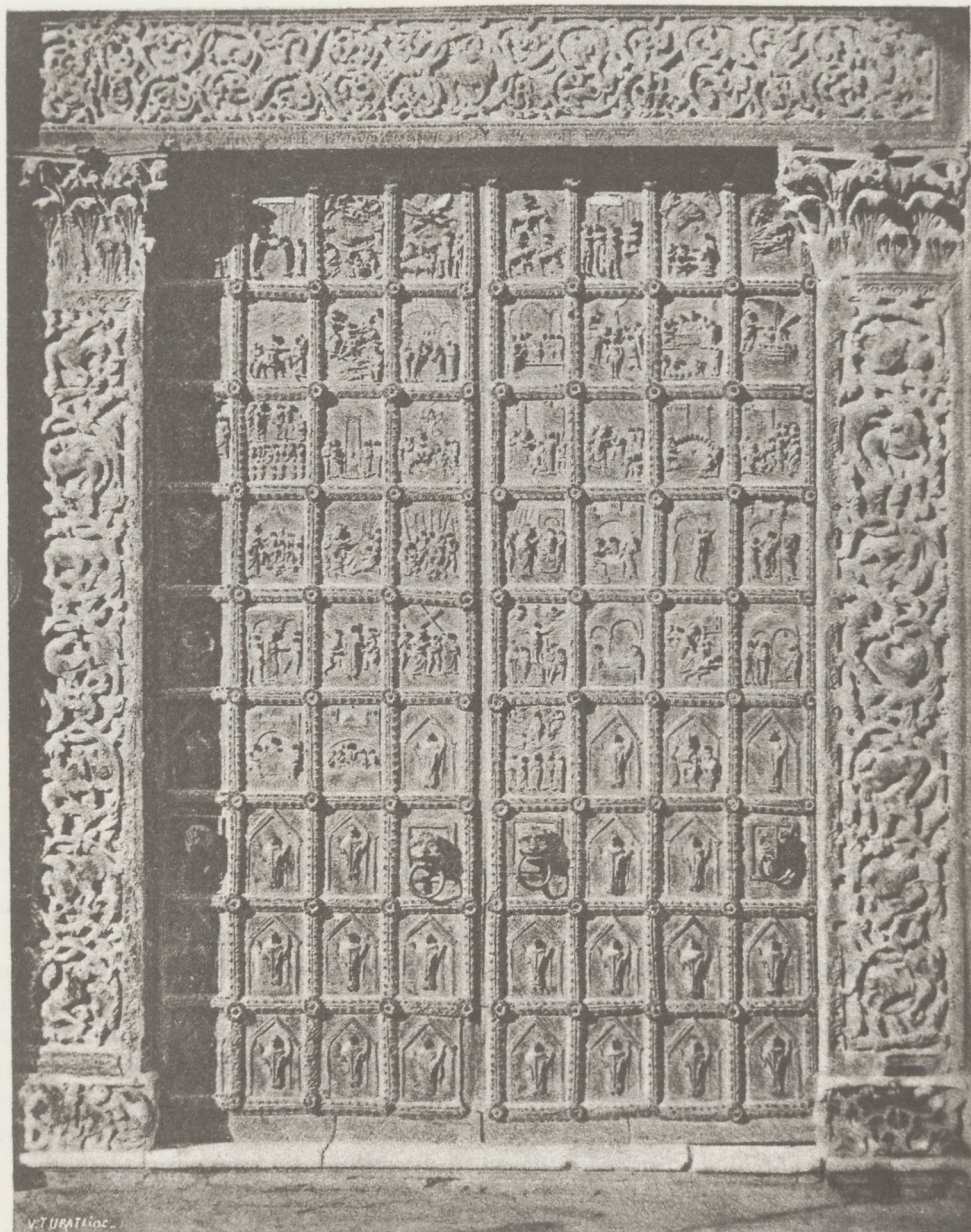 V. TURATI inc.